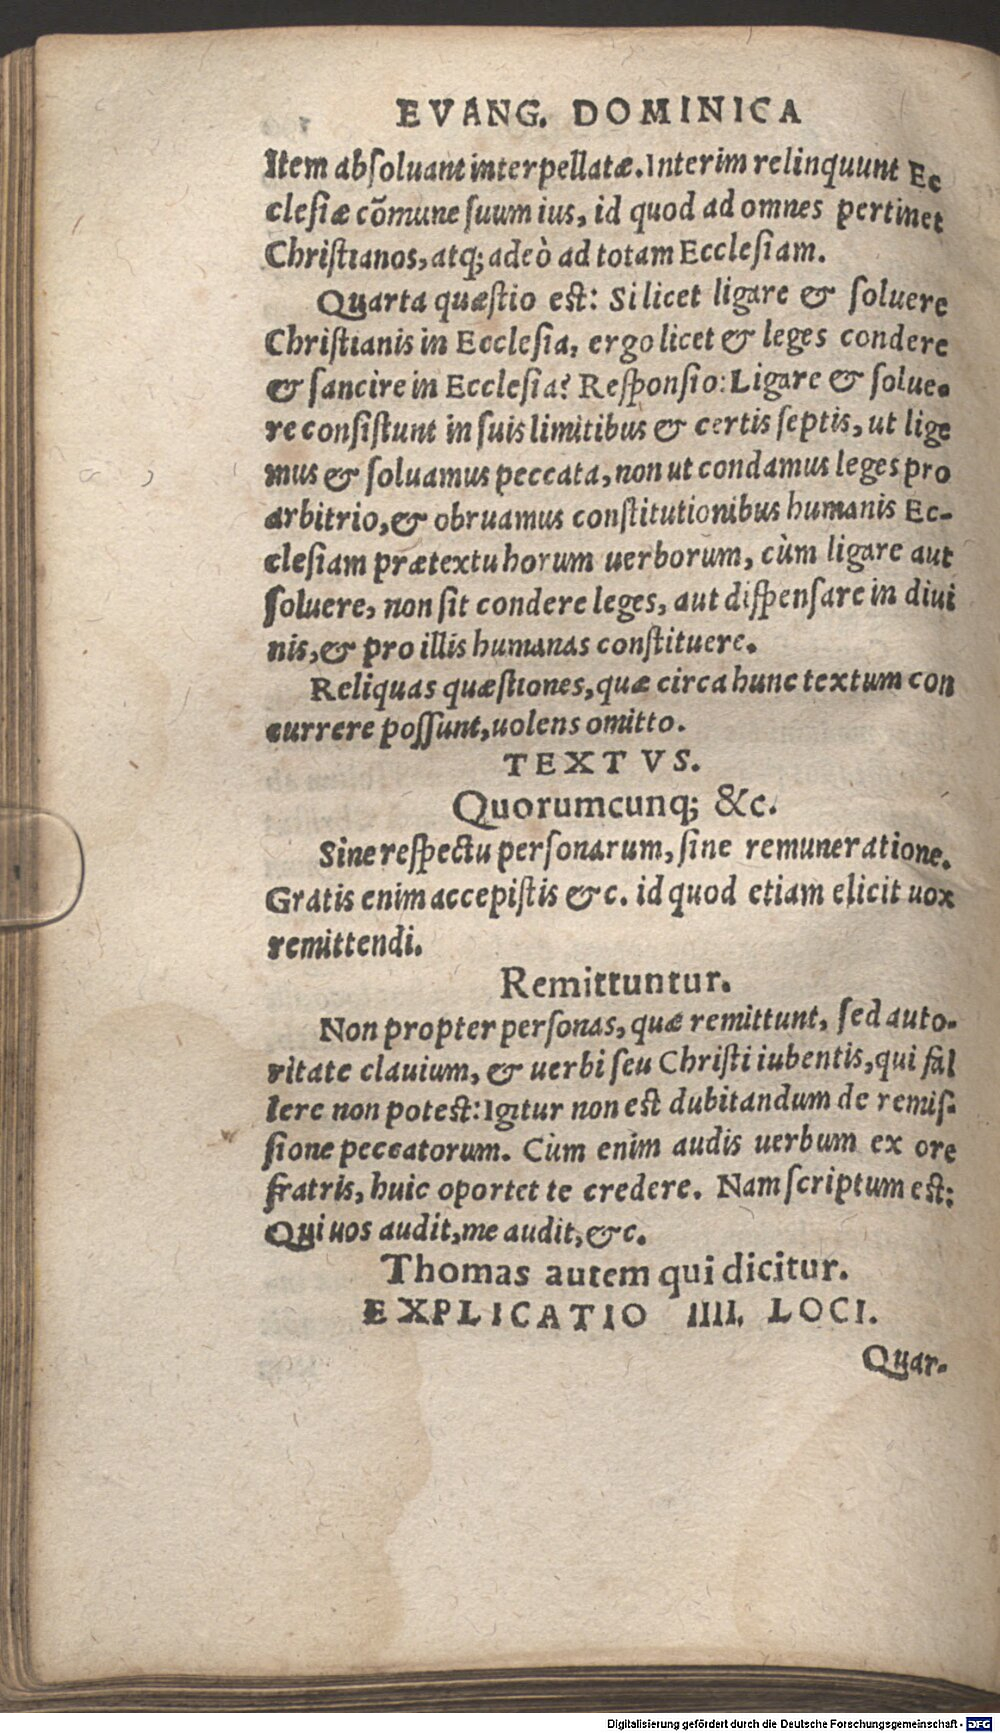 EVANG. DOMINICA
Item absoluant interpellatæ. Interim relinquunt Ec
clesiæ cõmune suum ius, id quod ad omnes pertinet
Christianos, atq; adeò ad totam Ecclesiam.
Quarta quæstio est: Si licet ligare & soluere
Christianis in Ecclesia, ergo licet & leges condere
& sancire in Ecclesia? Responsio: Ligare & solue-
re consistunt in suis limitibus & certis septis, ut lige
mus & soluamus peccata, non ut condamus leges pro
arbitrio, & obruamus constitutionibus humanis Ec-
clesiam prætextu horum uerborum, cùm ligare aut
soluere, non sit condere leges, aut dispensare in diui
nis, & pro illis humanas constituere.
Reliquas quæstiones, quæ circa hunc textum con
currere possunt, uolens omitto.
TEXTVS.
Quorumcunq; &c.
Sine respectu personarum, sine remuneratione.
Gratis enim accepistis &c. id quod etiam elicit uox
remittendi.
Remittuntur.
Non propter personas, quæ remittunt, sed auto-
ritate clauium, & uerbi seu Christi iubentis, qui fal
lere non potest: Igitur non est dubitandum de remis-
sione peccatorum. Cùm enim audis uerbum ex ore
fratris, huic oportet te credere. Nam scriptum est:
Qui uos audit, me audit, &c.
Thomas autem qui dicitur.
EXPLICATIO IIII. LOCI.
Quar-
Digitalisierung gefördert durch die Deutsche Forschungsgemeinschaft - DFG